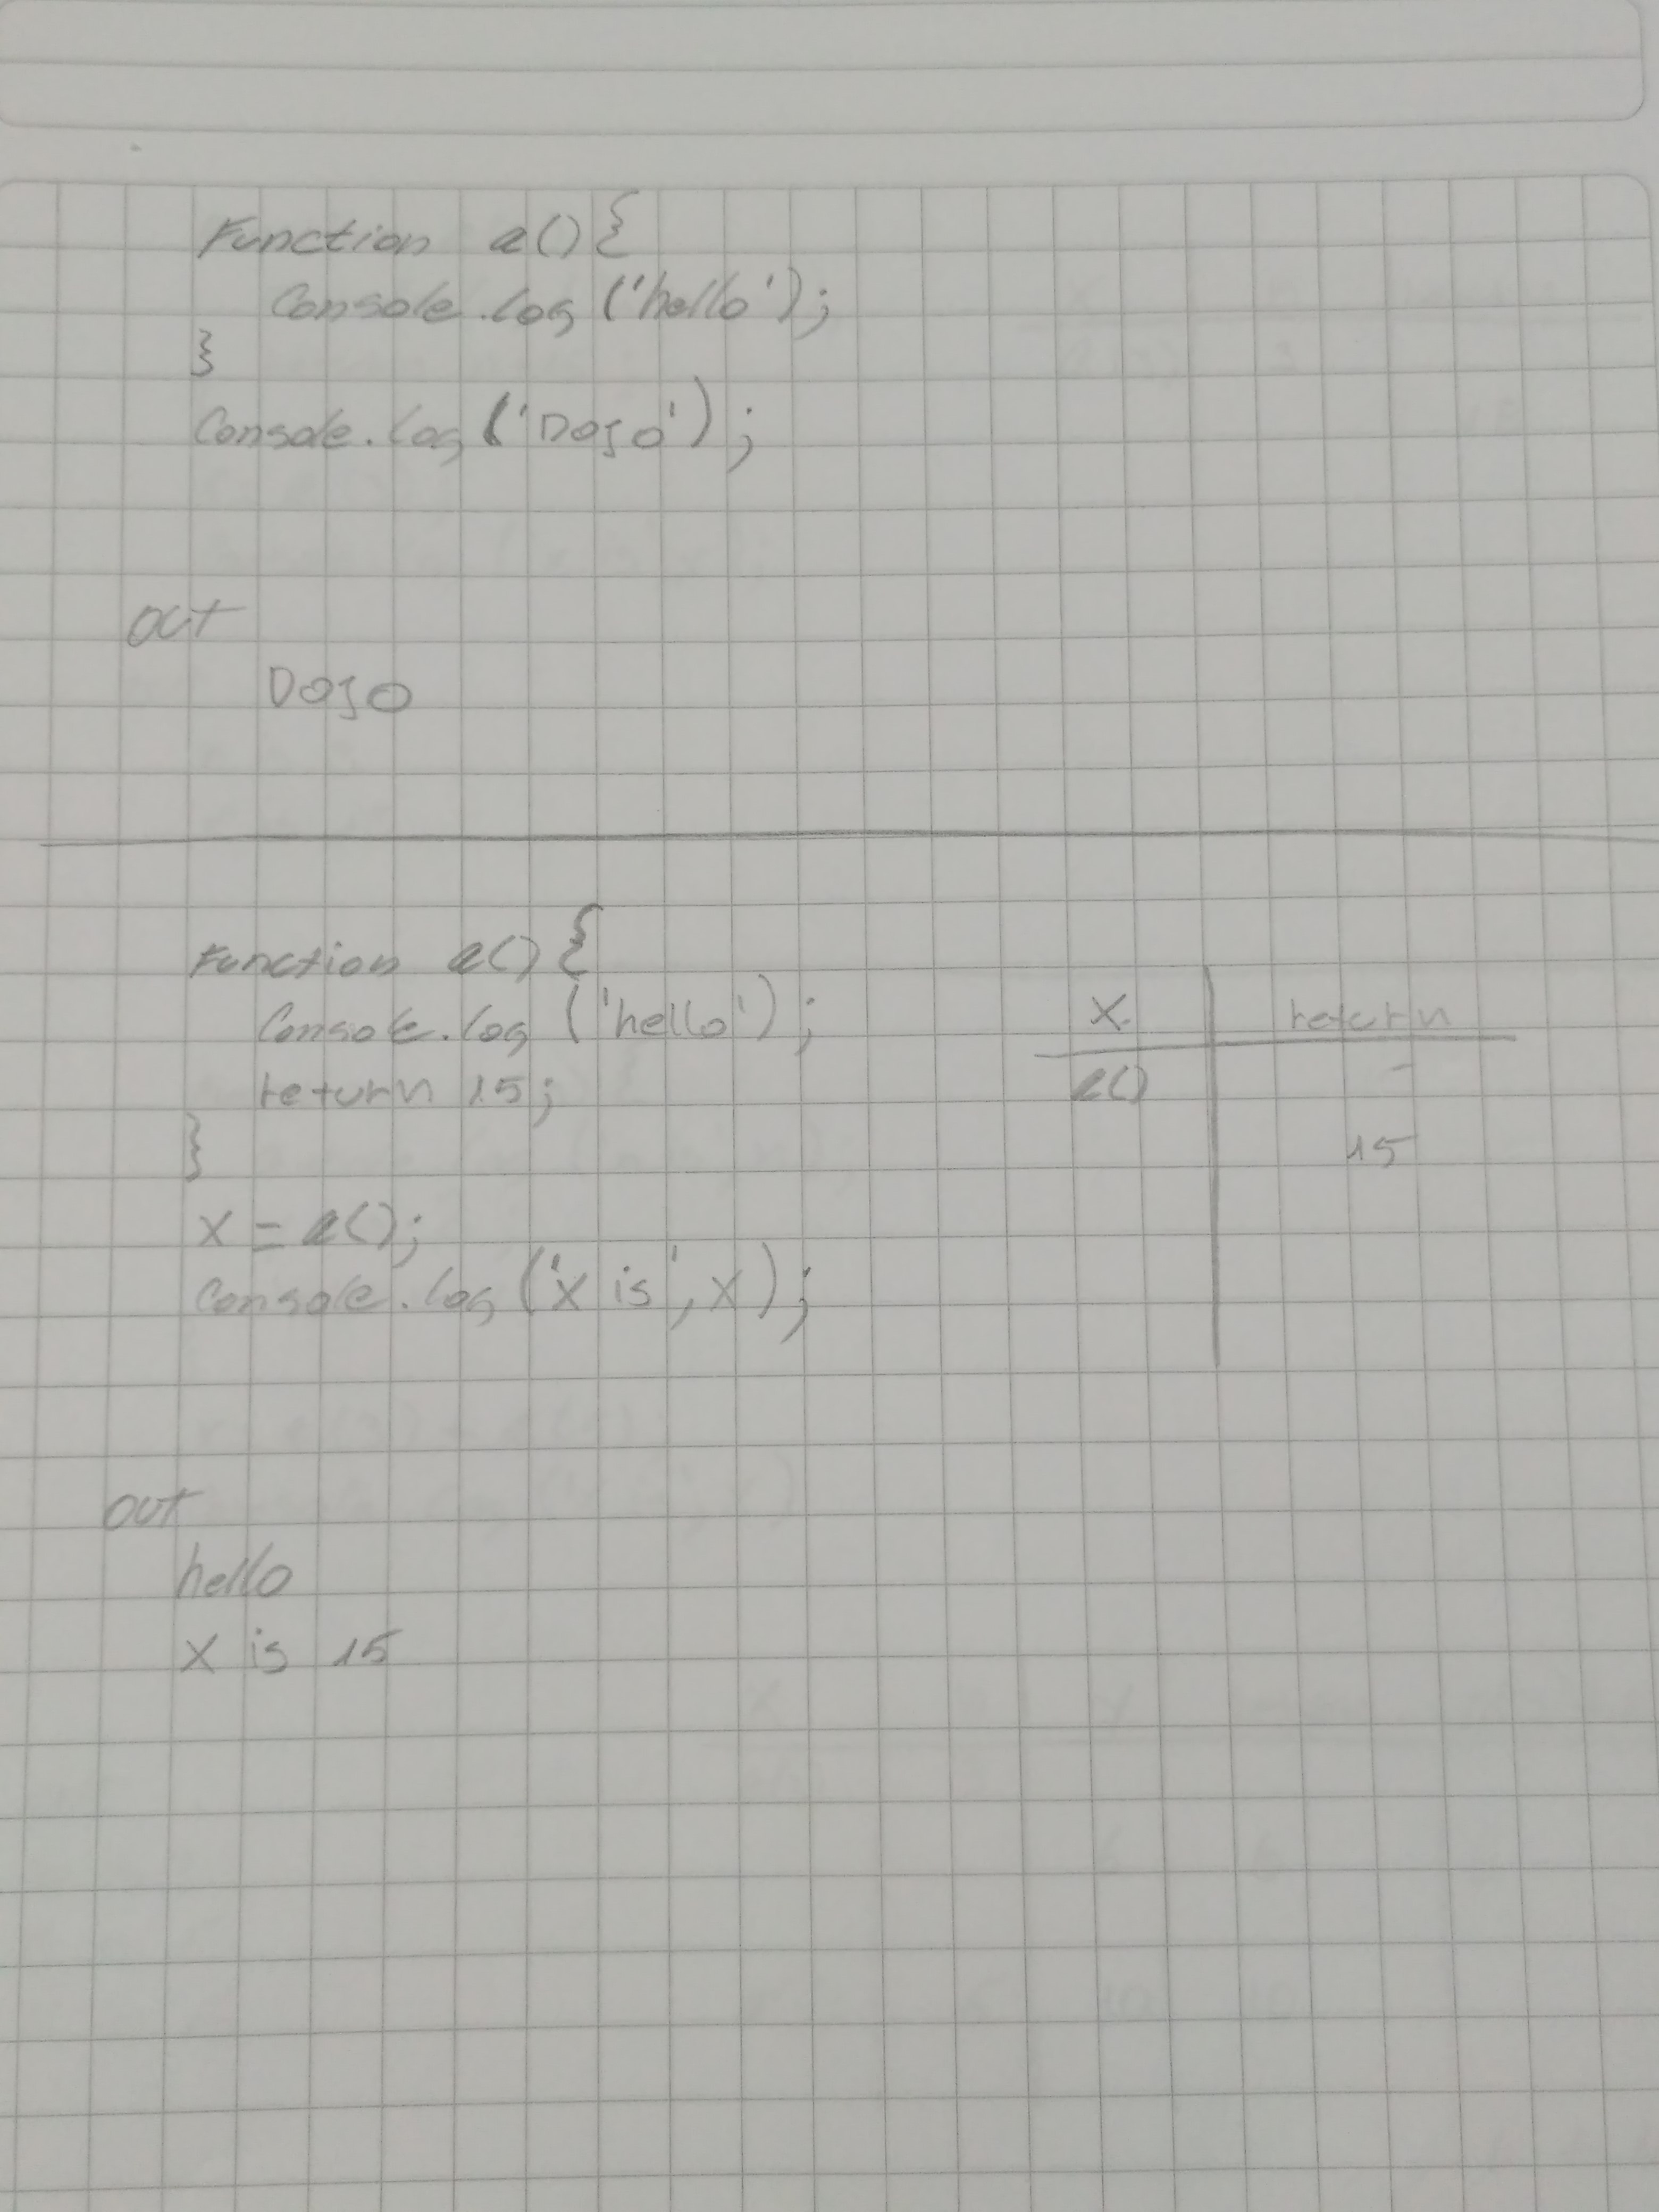 Function a(){
Console.log('hello');
}
Console.log('Dojo');
out
Dojo
Function a(){
Console.log('hello');
return 15;
}
X = a();
Console.log('X is', X);
X return
a() -
15
out
hello
X is 15